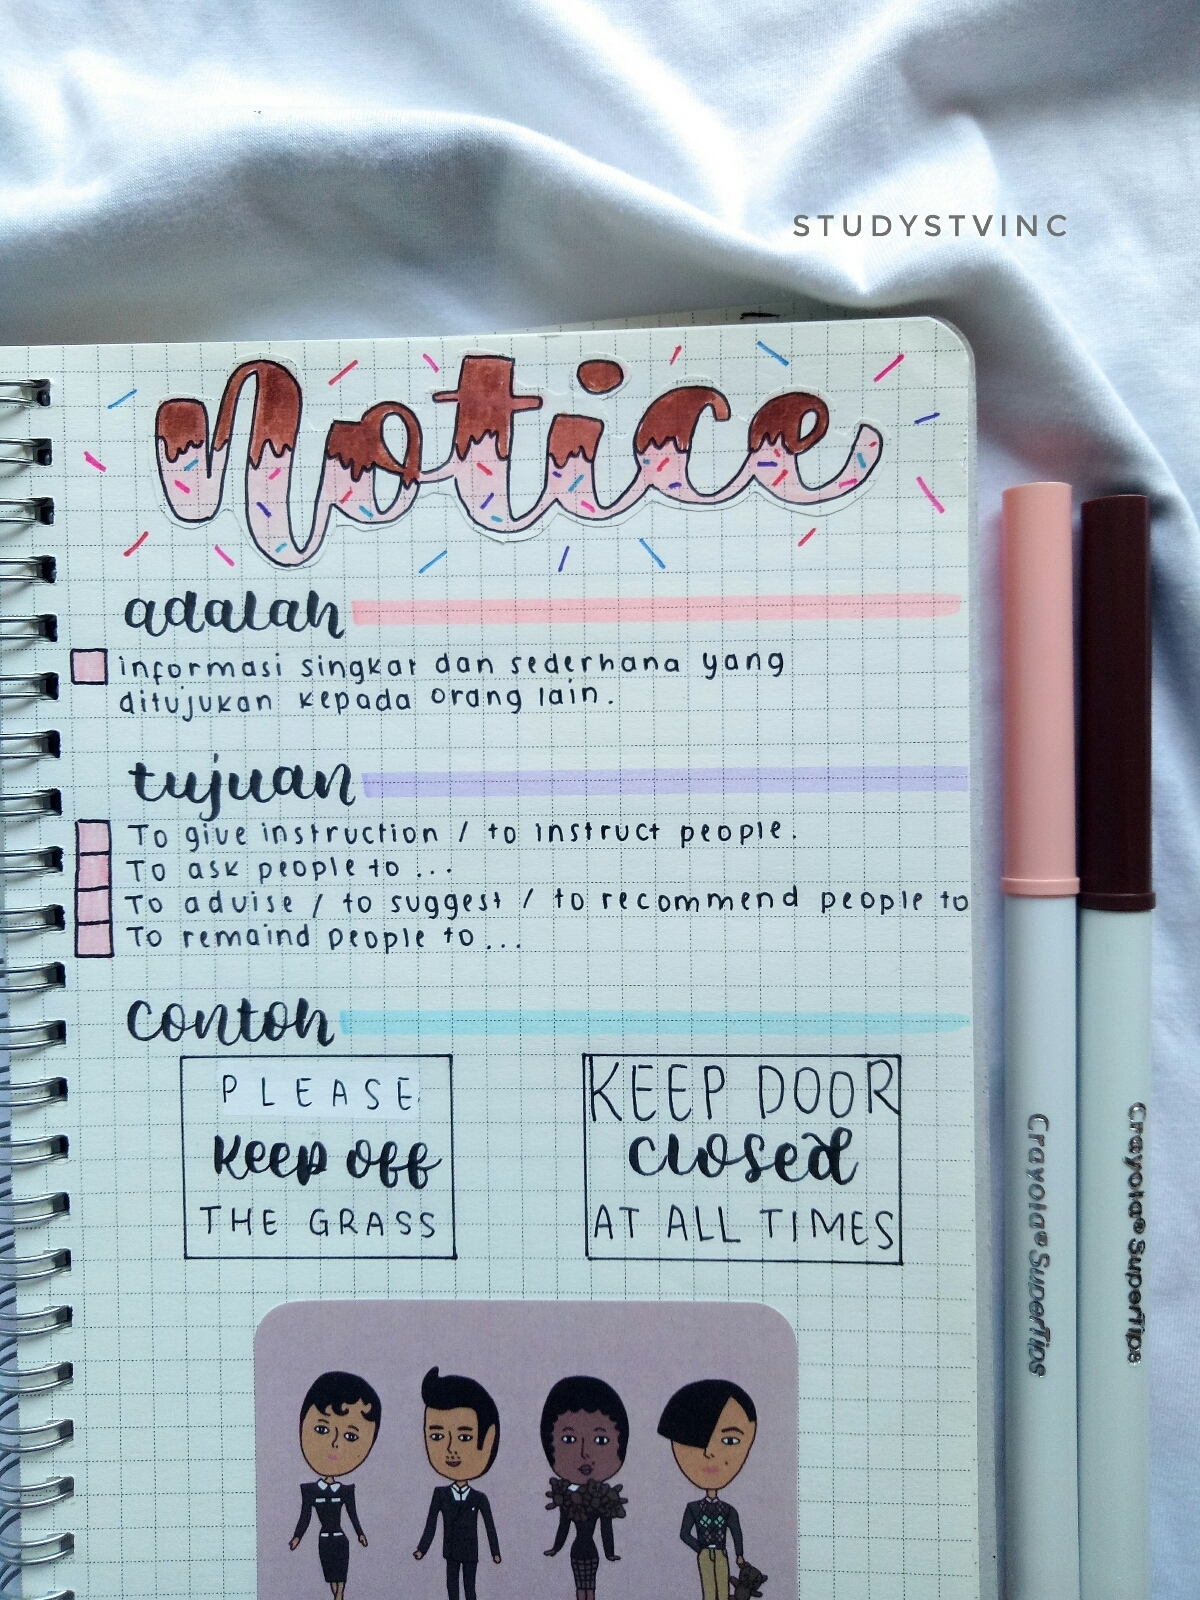 STUDYSTVINC
Notice
adalah
informasi singkat dan sederhana yang
ditujukan kepada orang lain.
tujuan
To give instruction / to instruct people.
To ask people to ...
To advise / to suggest / to recommend people to
To remaind people to ...
contoh
PLEASE
Keep off
THE GRASS
KEEP DOOR
closed
AT ALL TIMES
Crayola® SuperTips
Crayola® SuperTips